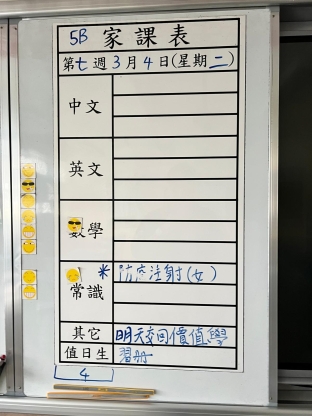 5B 家課表
第七週3月4日(星期二)
中文
英文
數學
常識 * 防疫注射(女)
其它 明天交回價值學
值日生 習冊
4